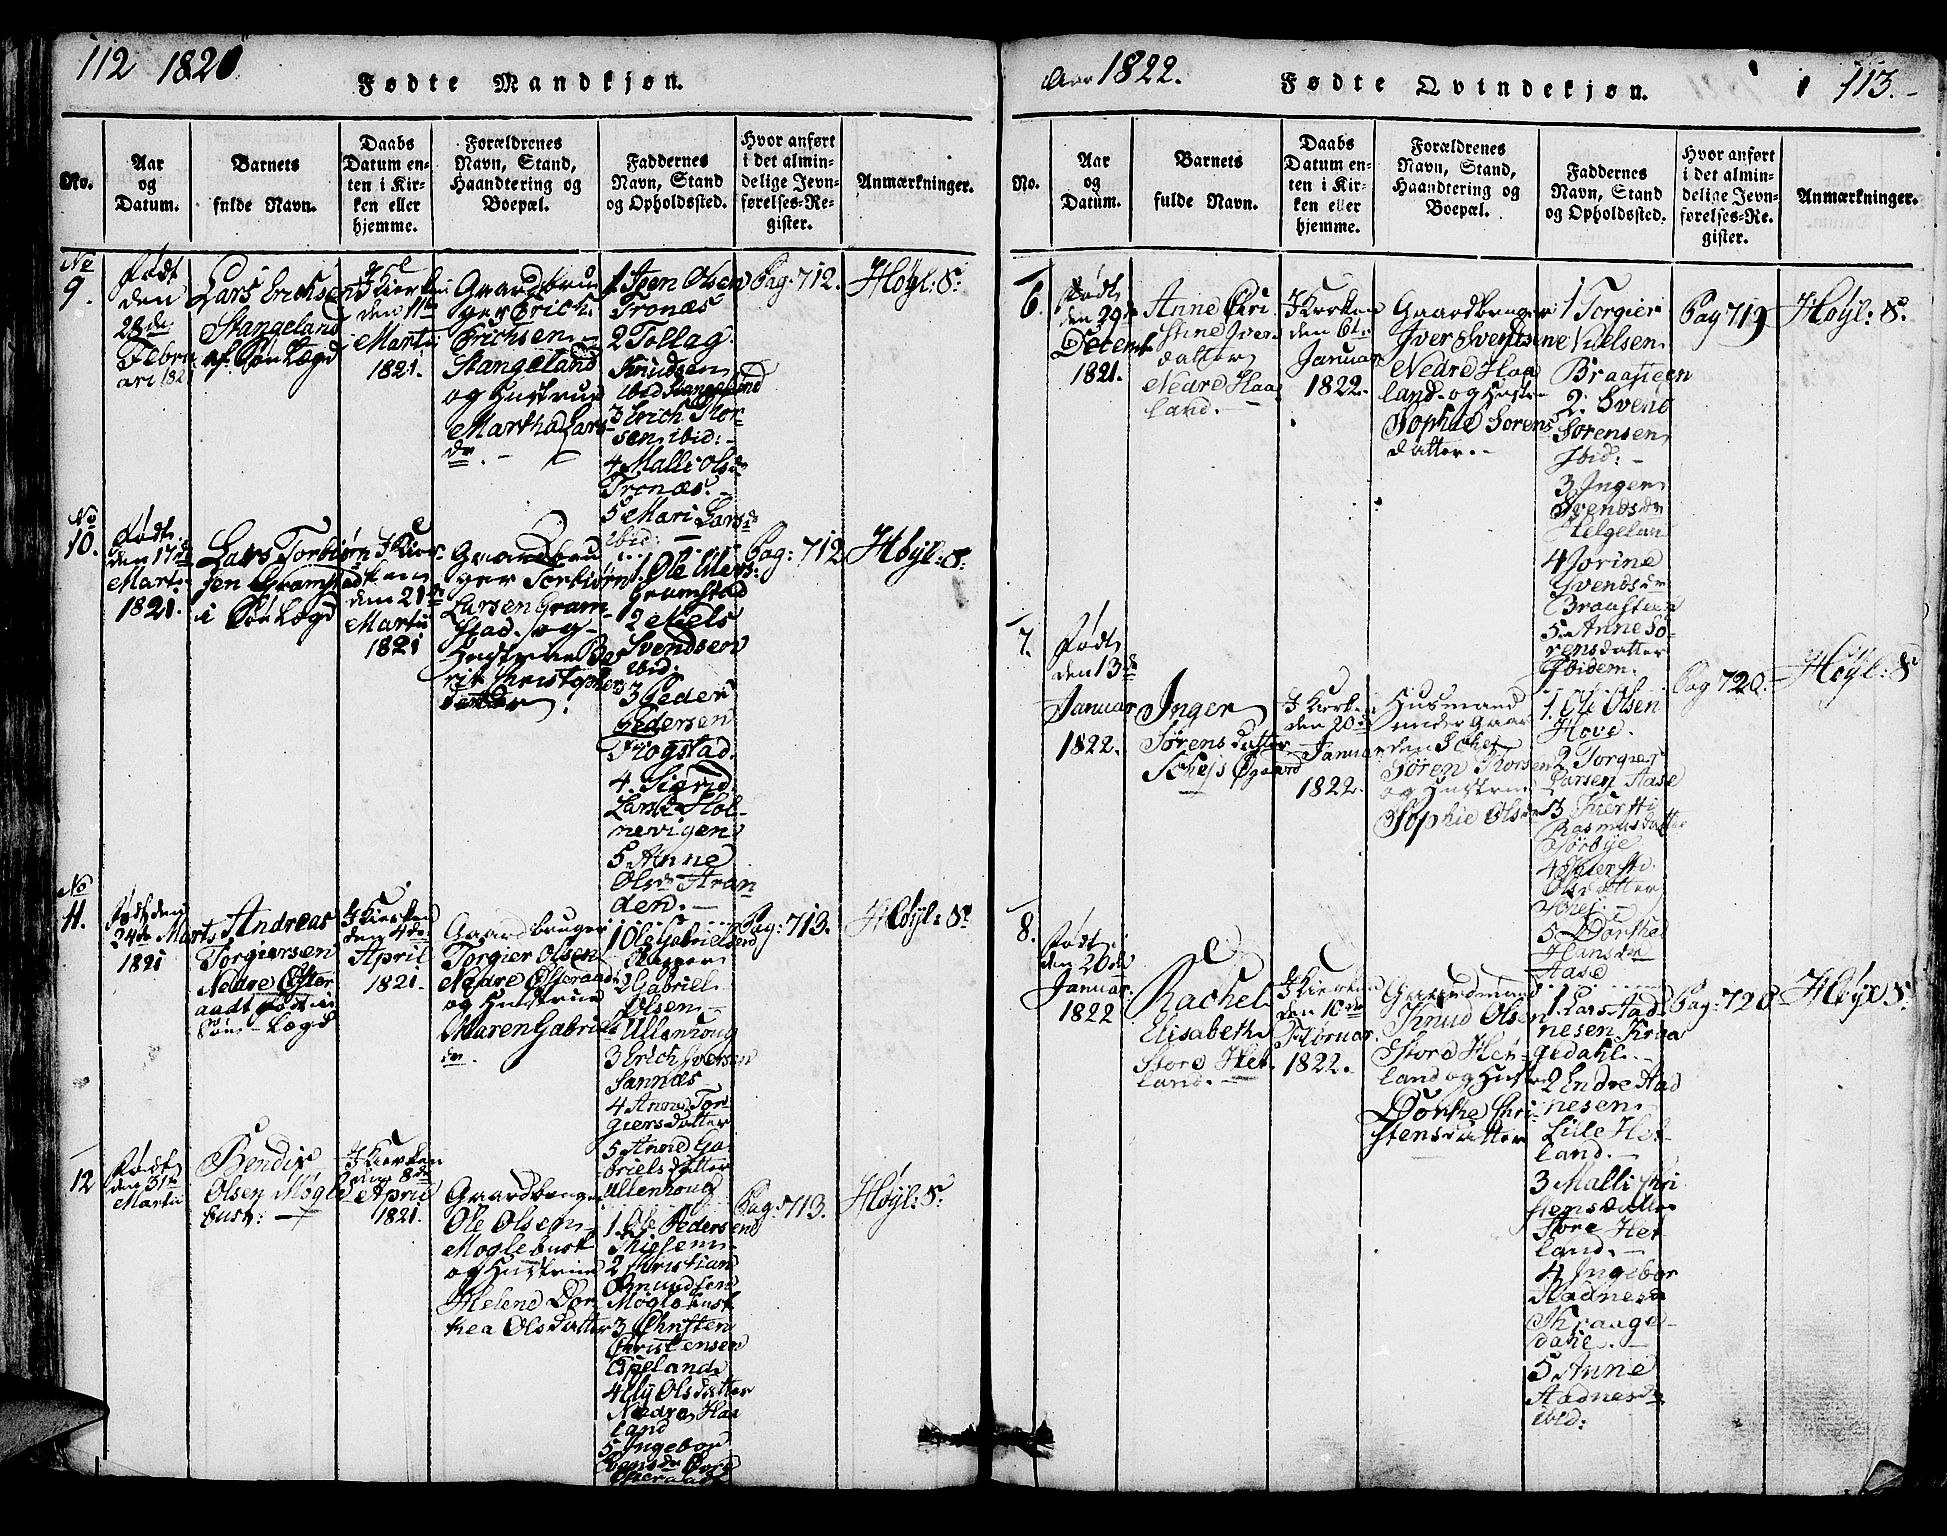 112 1821
Fødte Mandkjøn.
No.
Aar
og
Datum.
Barnets
fulde Navn.
Daabs
Datum en-
ten i Kir-
ken eller
hjemme.
Forældrenes
Navn, Stand,
Haandtering og
Boepæl.
Faddernes
Navn, Stand
og Opholdssted.
Hvor anført
i det almin-
delige Jevn-
førelses-Re-
gister.
Anmærkninger.
No
9.
Født
den
28de
Febru
ari 1821
Lars Erichsen
Stangeland
af Søn Lægd
I Kierken
den 11te
Martii
1821.
Gaardbru
ger Erich
Erichsen
Stangeland
og Hustrue
Martha Lars
dr.
1 Iven Olsen
Tronæs
2 Tollag
Knudsen
ibid Stangeland
3 Erich Thor-
sen ibid:
4 Malli Olsdr
Tronæs.
5 Mari Larsd
ibid:
Pag: 712.
Høyl: S:
No
10.
Født
den 17de
Martii
1821.
Lars Torbiørn
sen Gramstad
i Søn Lægd
I Kier-
ken
den 21de
Martii
1821
Gaardbru
ger Torbiørn
Larsen Gram-
stad og
Hustrue Be
rit Christopher
datter.
1. Ole Olers:
Gramstad
2 Niels
Svendsen
ibid:
3 Peder
Pedersen
Frogstad.
4. Sigrid
Larsd Hol-
nevigen
5 Anne
Olsdr Stran
den.
Pag: 712
Høyl: S:
No
11.
Født den
24de Marts
1821
Andreas
Torgiersen
Nedre Øster
aadt født i
Søn Lægd
I Kierken
den 4de
April
1821.
Gaardbruger
Torgier Olsen
Nedre Østeraadt
og Hustrue
Maren Gabriels
dr.
1 Ole Gabrielsen
2 Gabriel
Olsen
Ullenhoug
3 Erich Iversen
Sannæs
4 Anne Tor
giersdatter
5 Anne Ga
brielsdatter
Ullenhoug
Pag: 713.
Høyl: S:
12
Født
den 31te
Martii
Bendix
Olsen Møgle
busk:
I Kierken
den 8de
April
1821.
Gaardbruger
Ole Olsen
Møglebusk
og Hustrue
Helene Dor
thea Olsdatter
1. Ole Pedersen
Thiesem
2 Christian
Omundsen
Møglebusk
3 Christen
Christensen
Espeland
4 Ely Olsdatter
Nedre Haa
land
5 Ingebor
Pag: 713.
Høyl: S:
Aar 1822.
Fødte Qvindekjøn.
113.
No.
Aar
og
Datum.
Barnets
fulde Navn.
Daabs
Datum en-
ten i Kir-
ken eller
hjemme.
Forældrenes
Navn, Stand,
Haandtering og
Boepæl.
Faddernes
Navn, Stand
og Opholdssted.
Hvor anført
i det almin-
delige Jevn-
førelses-Re-
gister.
Anmærkninger.
6.
Født
den 29de
Decemb
1821.
Anne Chri
stine Iver
datter
Nedre Haa
land.
I Kierken
den 6te
Januar
1822.
Gaardbruger
Iver Svendsen
Nedre Haa
land og Hustr
Sophie Sørens
datter.
1 Torgier
Nielsen
Braasteen
2. Svend
Sørensen
Ibid:
3 Inger
Svendsdr
Helgeland
4 Jorine
Svendsdr
Braasteen
5. Anne Sø-
rensdatter
Ibidem.
Pag 719
Høyl: S:
7.
Født
den 13de
Januar
1822.
Inger
Sørensdatter
Schejs Øgaard
I Kierken
den 20de
Januar
1822.
Husmand
under Gaar
den Schej
Søren Thorsen
og Hustrue
Sophie Olsdr
1. Ole Olsen
Hove.
2 Torgier
Larsen Aase
3 Kiersti
Rasmusdatter
Sørbye
4 Kiersti
Olsdatter
Schej
5 Dorthed
Hansdr
Aase
Pag 720.
Høyl: S
8.
Født
den 20de
Januar
1822
Rachel
Elisabeth
Store Het
land.
I Kierken
den 10de
Februar
1822.
Gaardmand
Knud Olsen
Store Het-
land og Hustr
Dorthe Chri
stensdatter
1. Lars Aad
nesen Kraa
gedahl.
2 Endre Aad
nesen
Lille Het
land.
3 Malli Chri
stensdatter
Store Het
land.
4 Ingebor
Aadnesd
Thraage
dahl.
5 Anne
Aadnesdr
ibid:
Pag: 720
Høye S: